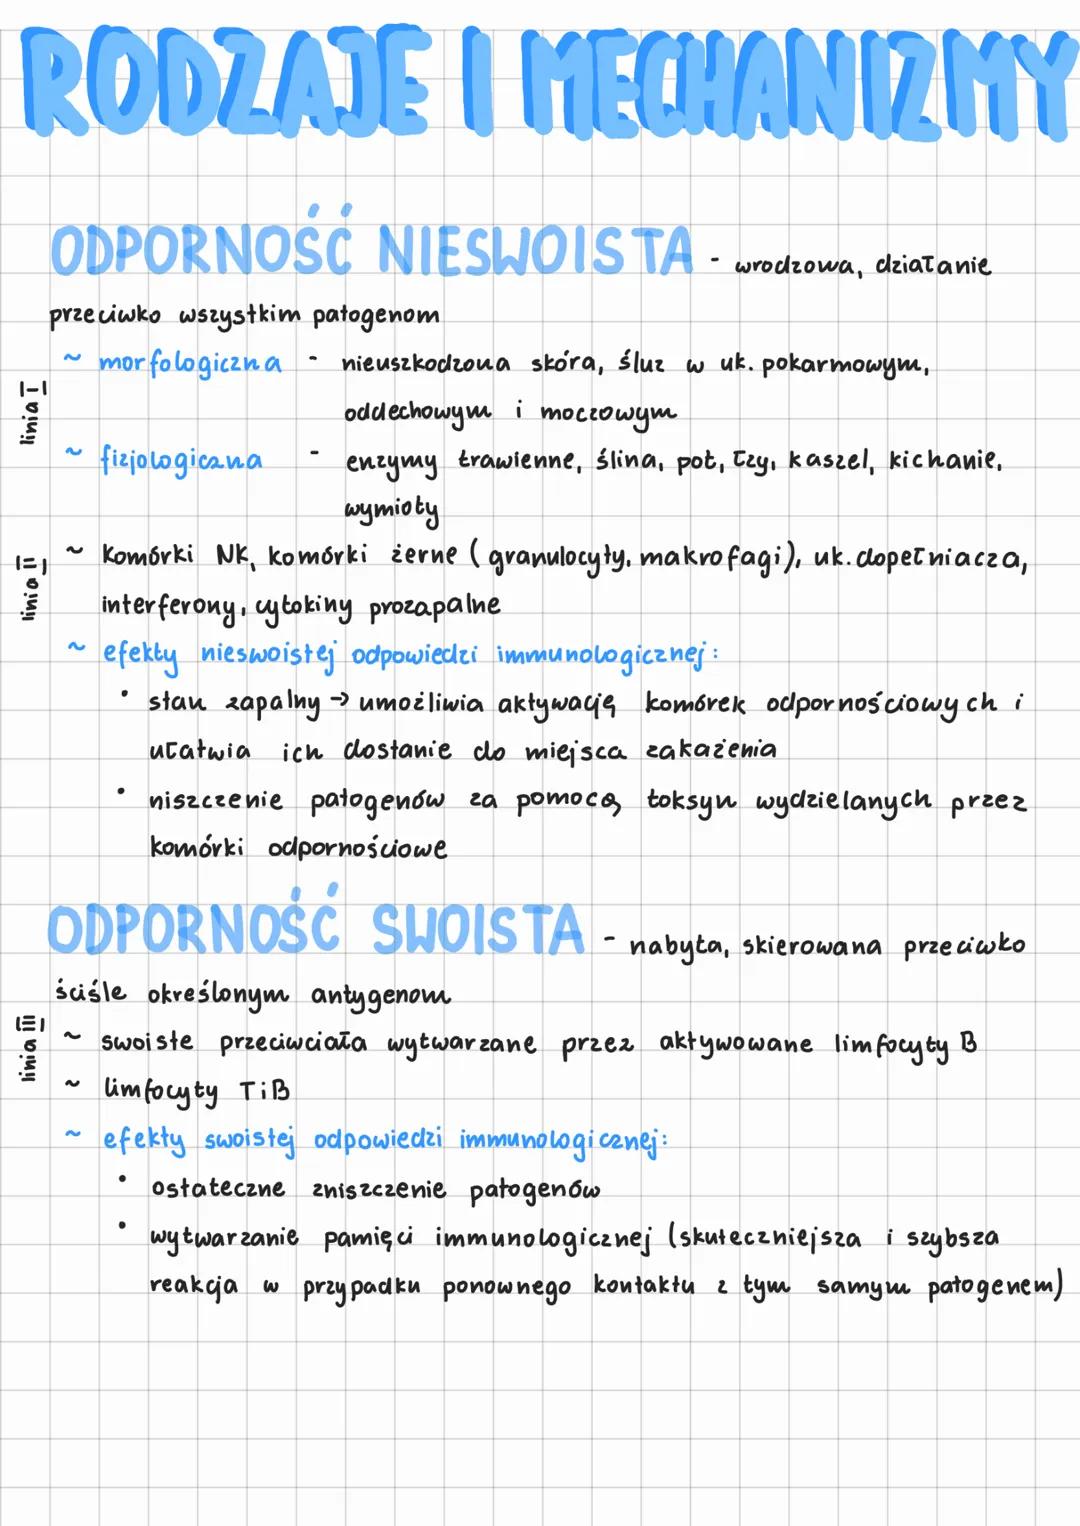 RODZAJE I MECHANIZMY
ODPORNOŚĆ NIESWOISTA - wrodzowa, działanie
przeciwko wszystkim patogenom
linia I
~ morfologiczna - nieuszkodzona skóra, śluz w uk. pokarmowym,
oddechowym i moczowym
~ fizjologiczna - enzymy trawienne, ślina, pot, łzy, kaszel, kichanie,
wymioty
linia II
~ Komórki NK, komórki żerne (granulocyty, makrofagi), uk. dopełniacza,
interferony, cytokiny prozapalne
~ efekty nieswoistej odpowiedzi immunologicznej:
• stan zapalny → umożliwia aktywację komórek odpornościowych i
ułatwia ich dostanie do miejsca zakażenia
• niszczenie patogenów za pomocą toksyn wydzielanych przez
komórki odpornościowe
ODPORNOŚĆ SWOISTA - nabyta, skierowana przeciwko
ściśle określonym antygenom
linia III
~ swoiste przeciwciała wytwarzane przez aktywowane limfocyty B
~ limfocyty T i B
~ efekty swoistej odpowiedzi immunologicznej:
• ostateczne zniszczenie patogenów
• wytwarzanie pamięci immunologicznej (skuteczniejsza i szybsza
reakcja w przypadku ponownego kontaktu z tym samym patogenem)